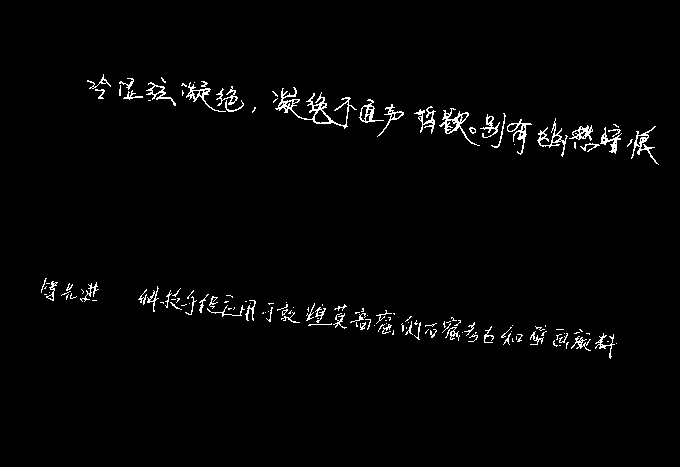 冷涩弦凝绝,凝绝不通声暂歇。别有幽愁暗恨
等先进 科技手段应用于敦煌莫高窟的石窟考古和壁画颜料